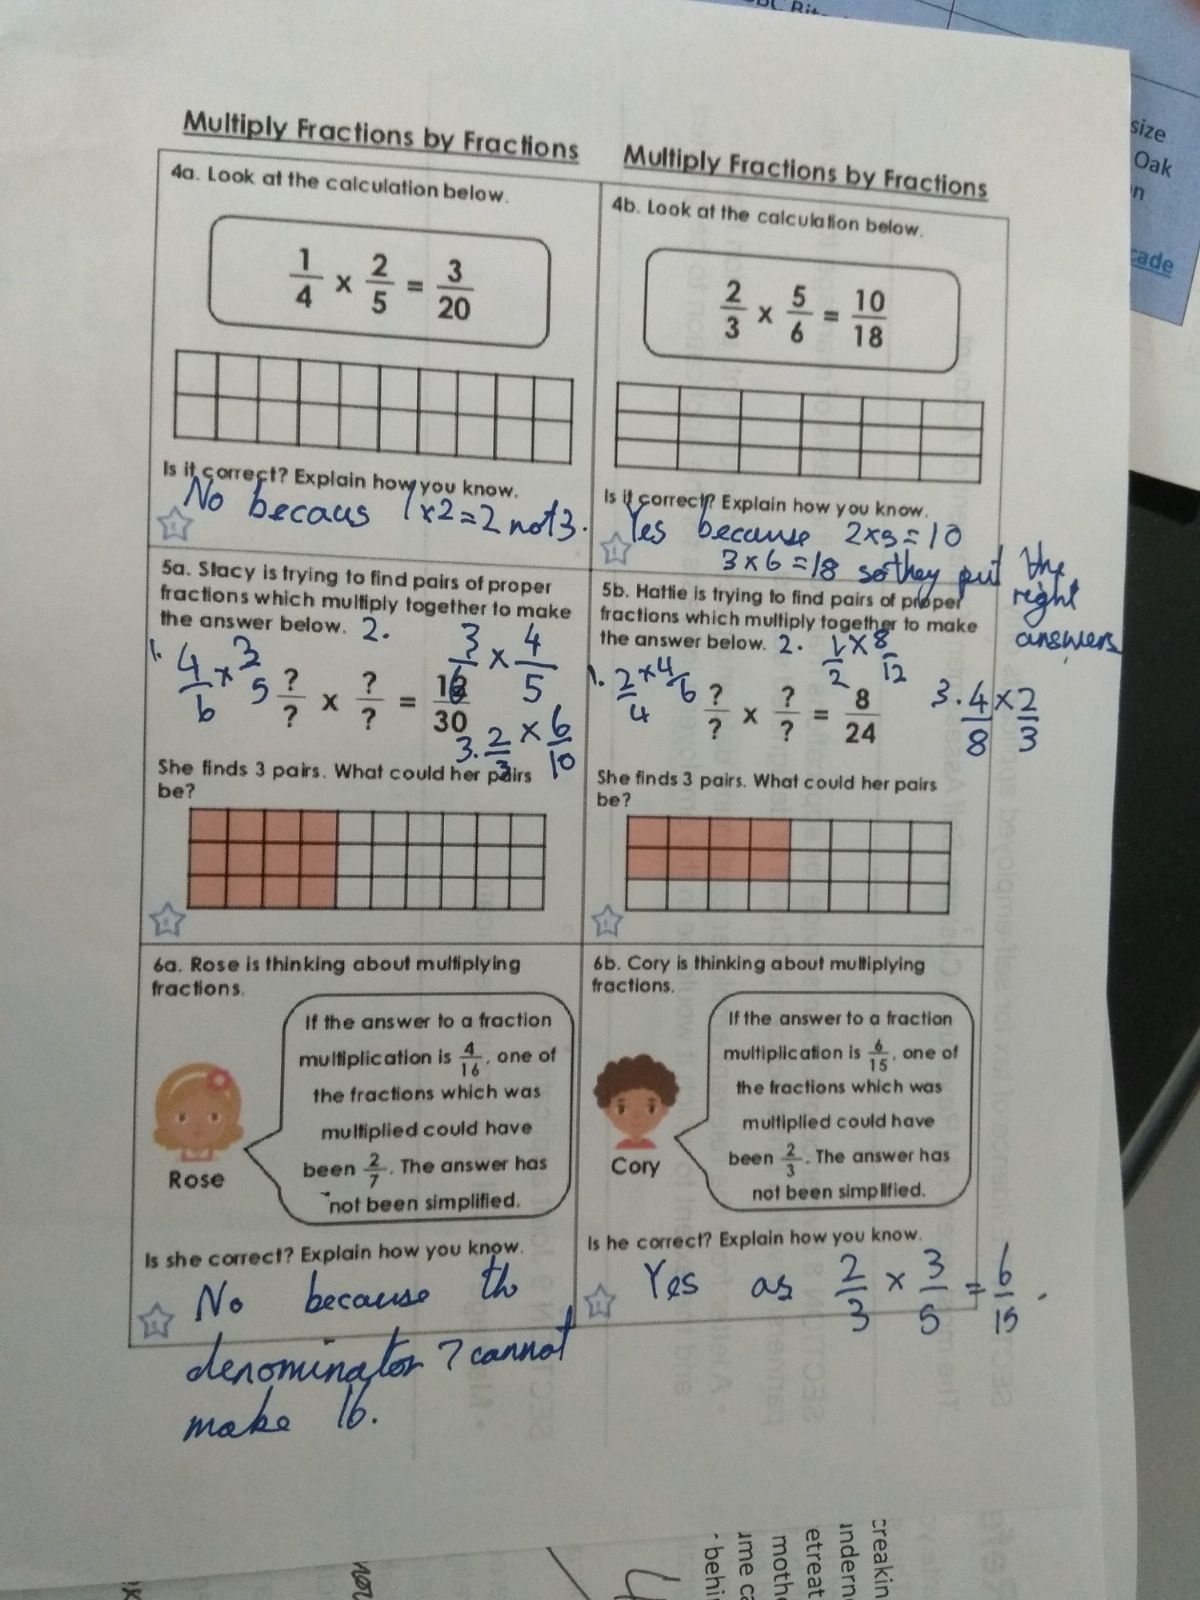 Multiply Fractions by Fractions
4a. Look at the calculation below.
1/4 x 2/5 = 3/20
Is it correct? Explain how you know.
No becaus 1x2=2 not 3.
Multiply Fractions by Fractions
4b. Look at the calculation below.
2/3 x 5/6 = 10/18
Is it correct? Explain how you know.
Yes because 2x5=10
3x6=18 so they put the
right
answers
5a. Stacy is trying to find pairs of proper
fractions which multiply together to make
the answer below. 2. 3/6 x 4/5
1. 4/6 x 3/5
?/? x ?/? = 12/30
3. 2/3 x 6/10
She finds 3 pairs. What could her pairs
be?
5b. Hattie is trying to find pairs of proper
fractions which multiply together to make
the answer below. 2. 1/2 x 8/12
1. 2/4 x 4/6
?/? x ?/? = 8/24
3. 4/8 x 2/3
She finds 3 pairs. What could her pairs
be?
6a. Rose is thinking about multiplying
fractions.
If the answer to a fraction
multiplication is 4/16, one of
the fractions which was
multiplied could have
been 2/7. The answer has
not been simplified.
Rose
Is she correct? Explain how you know.
No because th
denominator 7 cannot
make 16.
6b. Cory is thinking about multiplying
fractions.
If the answer to a fraction
multiplication is 6/15, one of
the fractions which was
multiplied could have
been 2/3. The answer has
not been simplified.
Cory
Is he correct? Explain how you know.
Yes as 2/3 x 3/5 = 6/15.
size
Oak
cade
creakin
indern
etreat
moth
behi